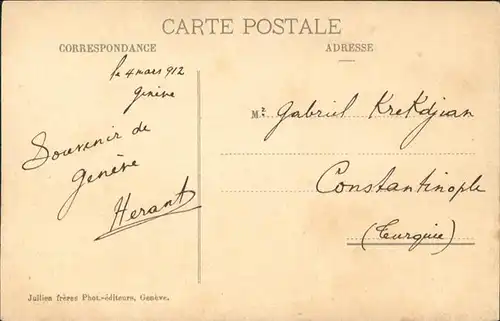 CARTE POSTALE
CORRESPONDANCE
ADRESSE
le 4 mars 912
Genève
Souvenir de
Genève
Herant
Mr. Gabriel KreKdjian
Constantinople
(Turquie)
Jullien frères Phot.-éditeurs, Genève.